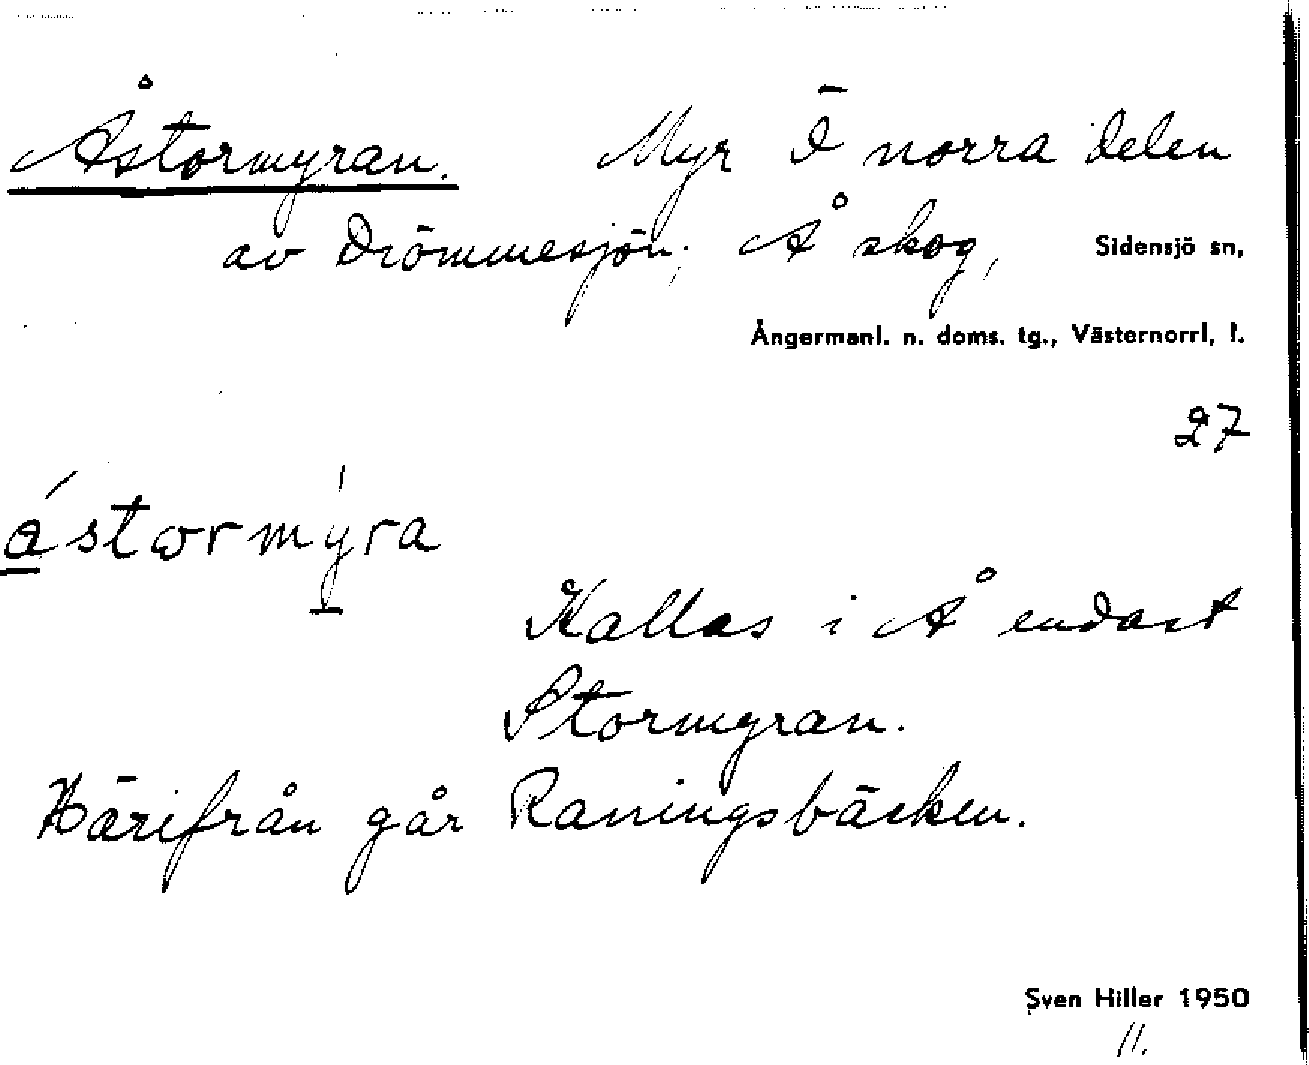 Åstormyran. Myr Ö norra delen
av Drömmesjön; Å skog, Sidensjö sn,
Ångermanl. n. doms. tg., Västernorrl, l.
27
ástωrmýra
Kallas i Å endast
Stormyran.
Härifrån går Raningsbäcken.
Sven Hiller 1950
11.